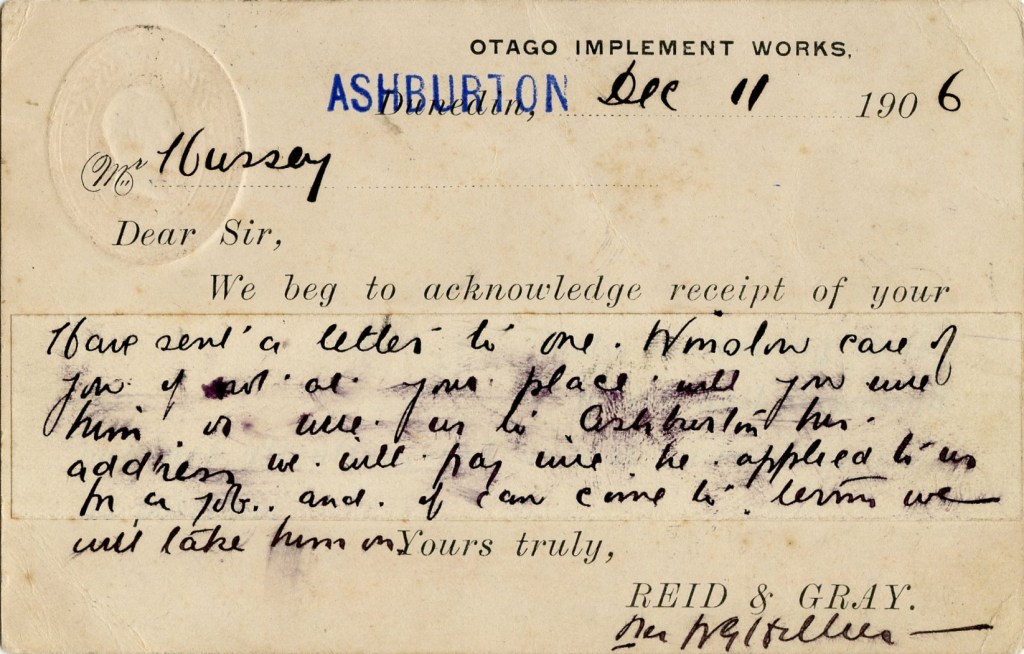 OTAGO IMPLEMENT WORKS,
ASHBURTON Dunedin, Dec 11 1906
Mr Hussey
Dear Sir,
We beg to acknowledge receipt of your
Have sent a letter to one. Winslow care of
you if not at your place will you wire
him or wire us to Ashburton his
address we will pay wire he applied to us
for a job.. and if can come to terms we
will take him on Yours truly,
REID & GRAY.
Per